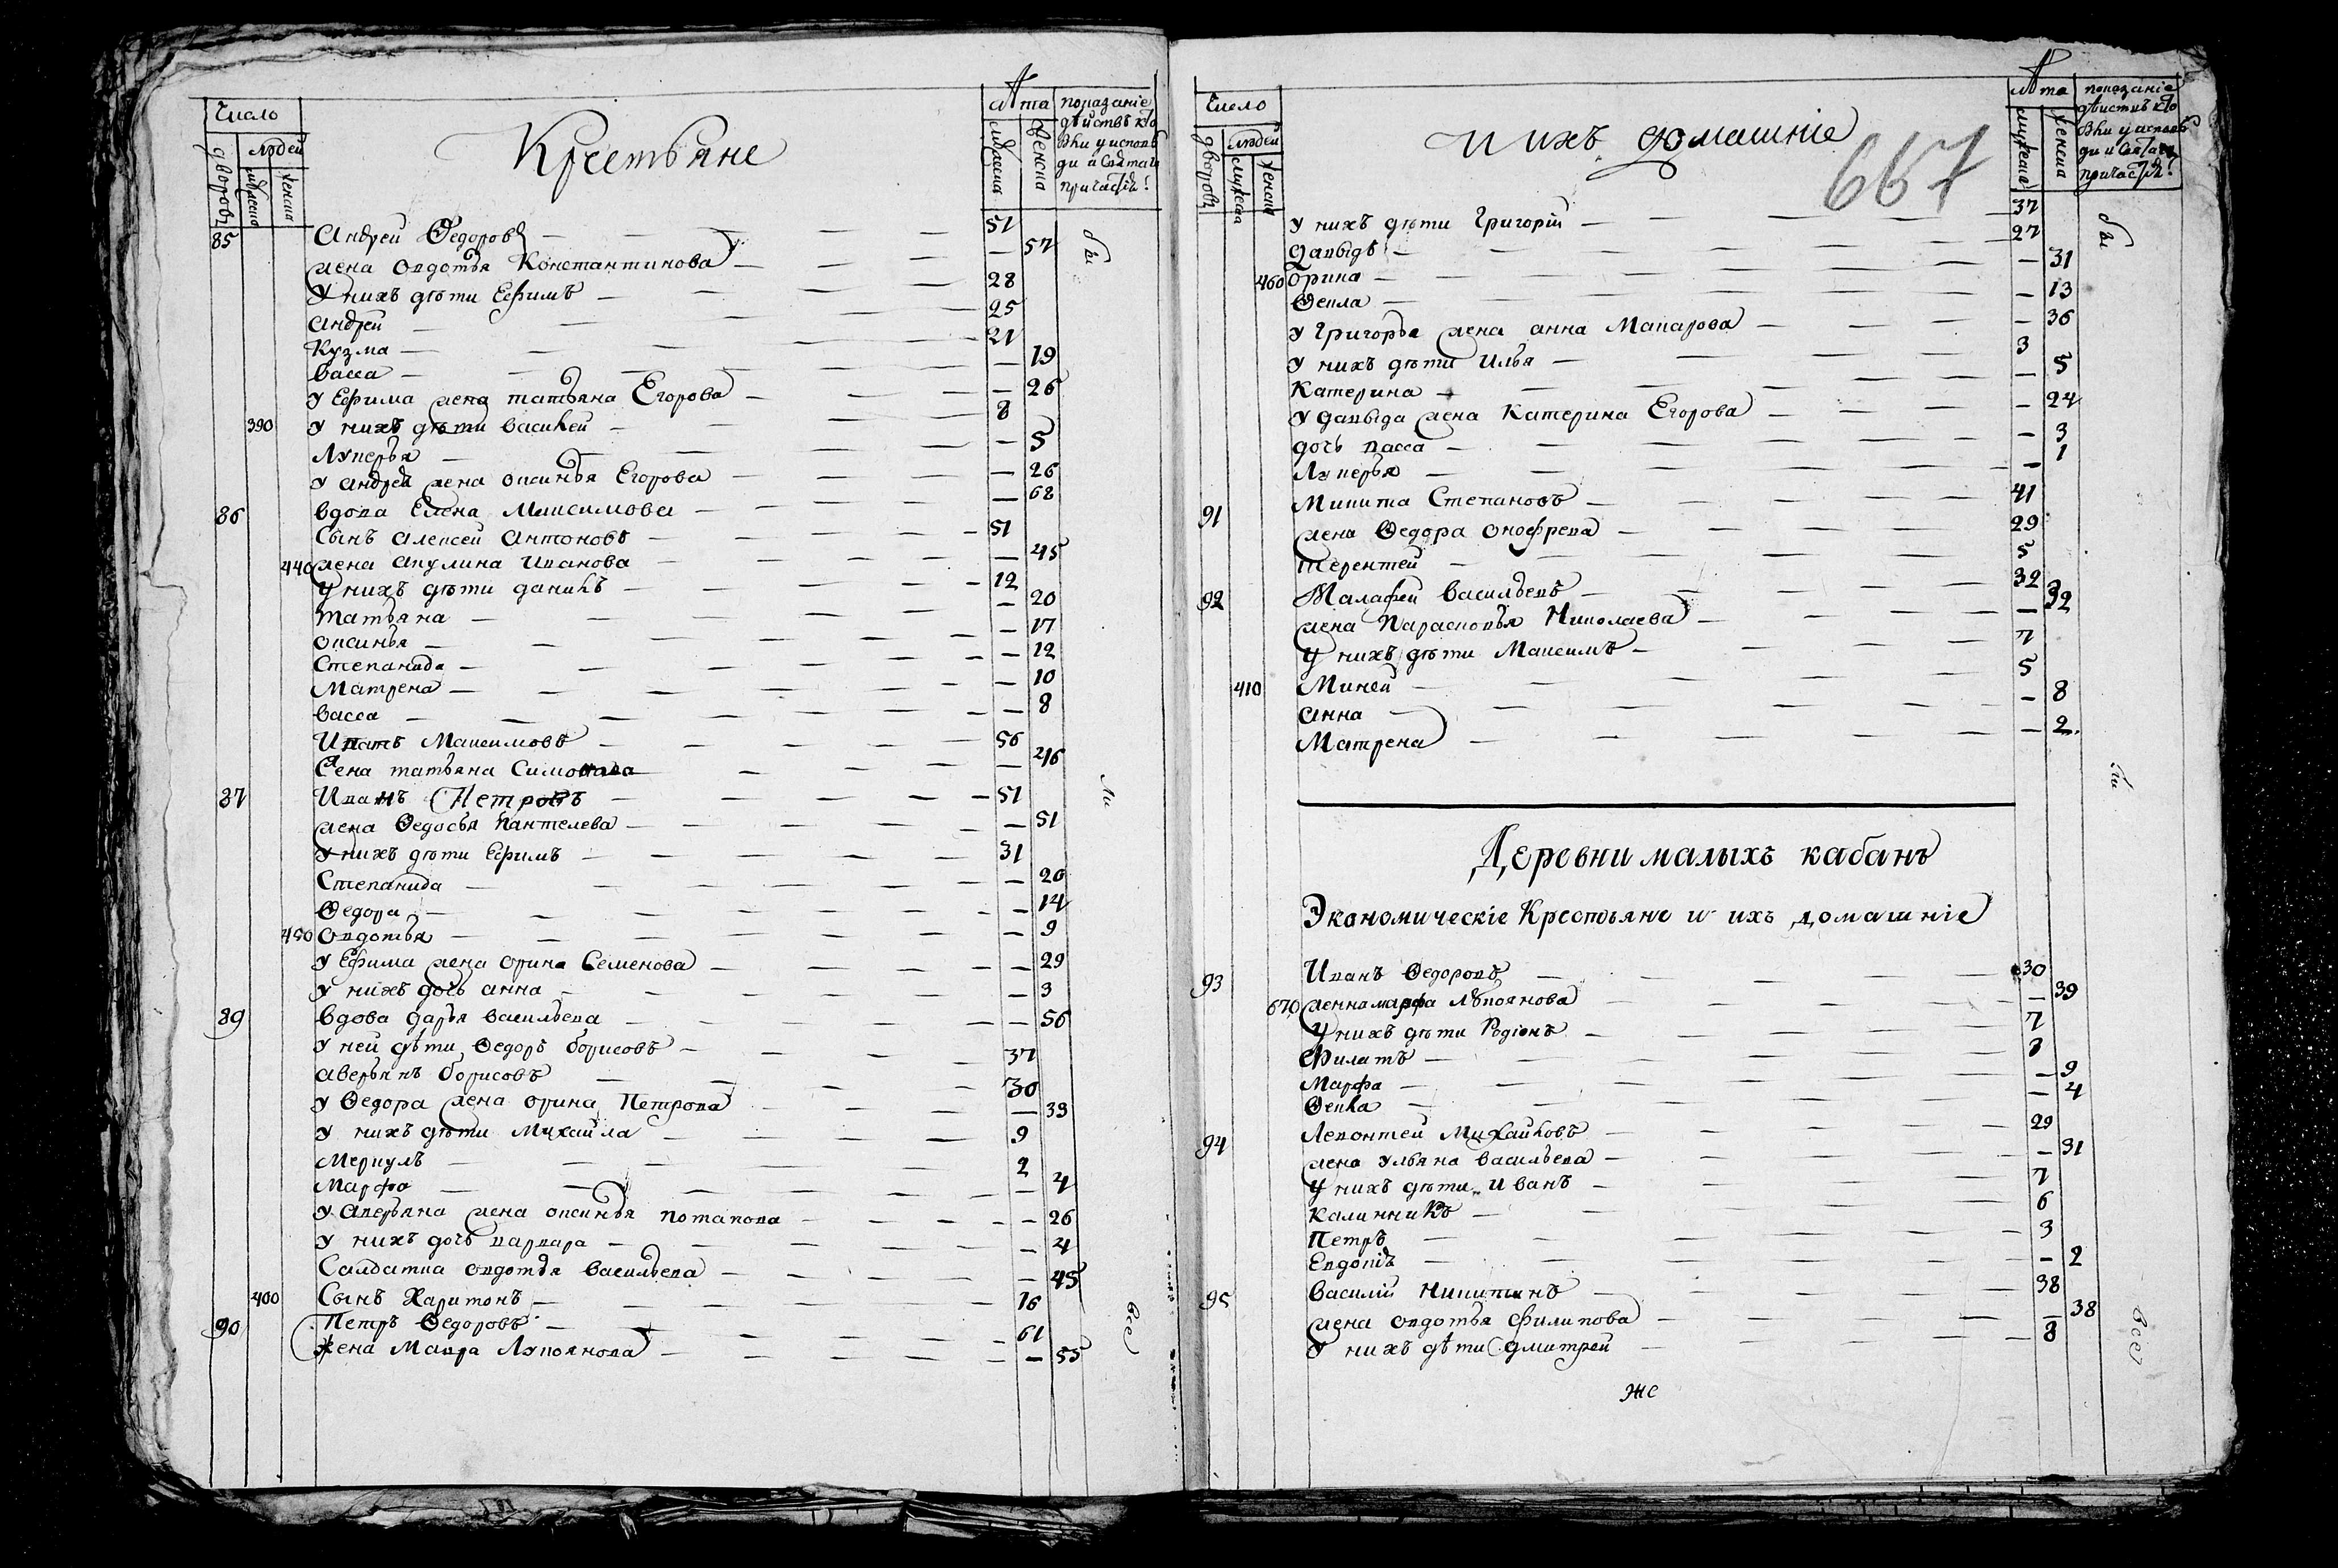 Число
людей
дворовъ
мужеска
женска
Крестьяне
лѣта
мужеска
женска
показаніе
дѣйствъ кто
былъ у исповѣ
ди и святаго
причастія
85 Андрей Ѳедоровъ 51
жена овдотья Константинова 57
У нихъ дѣти Ефимъ 28
андрей 25
Кузма 21
васса 19
у Ефима жена татьяна Егорова 26
390 у нихъ дѣти василей 8
Лукерья 5
у андрея жена оксинья Егорова 26
86 вдова Елена Максимова 68
Сынъ алексей антоновъ 51
440 жена акулина иванова 45
у нихъ дѣти данилъ 12
татьяна 20
оксинья 17
Степанида 12
Матрена 10
васса 8
Ипатъ Максимовъ 56
жена татьяна Симонова 46
87 Иванъ Петровъ 51
жена Ѳедосья пантелева 51
у нихъ дѣти Ефимъ 31
Степанида 20
Ѳедора 14
450 овдотья 9
у Ефима жена орина Семенова 29
у нихъ дочь анна 3
89 вдова дарья васильева 56
у ней дѣти Ѳедоръ борисовъ 37
аверьянъ борисовъ 30
у Ѳедора жена орина Петрова 33
у нихъ дѣти Михайла 9
Меркулъ 2
Марфа 4
у аверьяна жена оксинья потапова 26
у нихъ дочь варвара 4
Салдатка овдотья васильева 45
400 Сынъ Харитонъ 16
90 Петръ Ѳедоровъ 61
жена Мавра Лукоянова 55
бы
ли
все
Число
людей
дворовъ
мужеска
женска
и ихъ домашніе
667
лѣта
мужеска
женска
показаніе
дѣйствъ кто
былъ у исповѣ
ди и святаго
причастія
у нихъ дѣти Григорій 37
давыдъ 27
460 орина 31
Ѳекла 13
у Григорья жена анна Макарова 36
у нихъ дѣти Илья 3
Катерина 5
у давыда жена Катерина Егорова 24
дочь васса 3
Лукерья 1
91 Микита Степановъ 41
жена Ѳедора онофрева 29
терентей 5
92 Малафей васильевъ 32
жена Парасковья Николаева 32
у нихъ дѣти Максимъ 7
410 Миней 5
анна 8
Матрена 2
Деревни малыхъ кабанъ
Экономическіе Крестьяне и ихъ домашніе
93 Иванъ Ѳедоровъ 30
670 женна марфа Лукоянова 39
у нихъ дѣти Родіонъ 7
Филатъ 8
Марфа 9
Ѳекла 4
94 Левонтей Михайловъ 29
жена ульяна васильева 31
у нихъ дѣти иванъ 7
калинникъ 6
Петръ 3
Евдокія 2
95 василій Никитинъ 38
жена овдотья филипова 38
у нихъ дѣти дмитрей 8
же
бы
ли
все